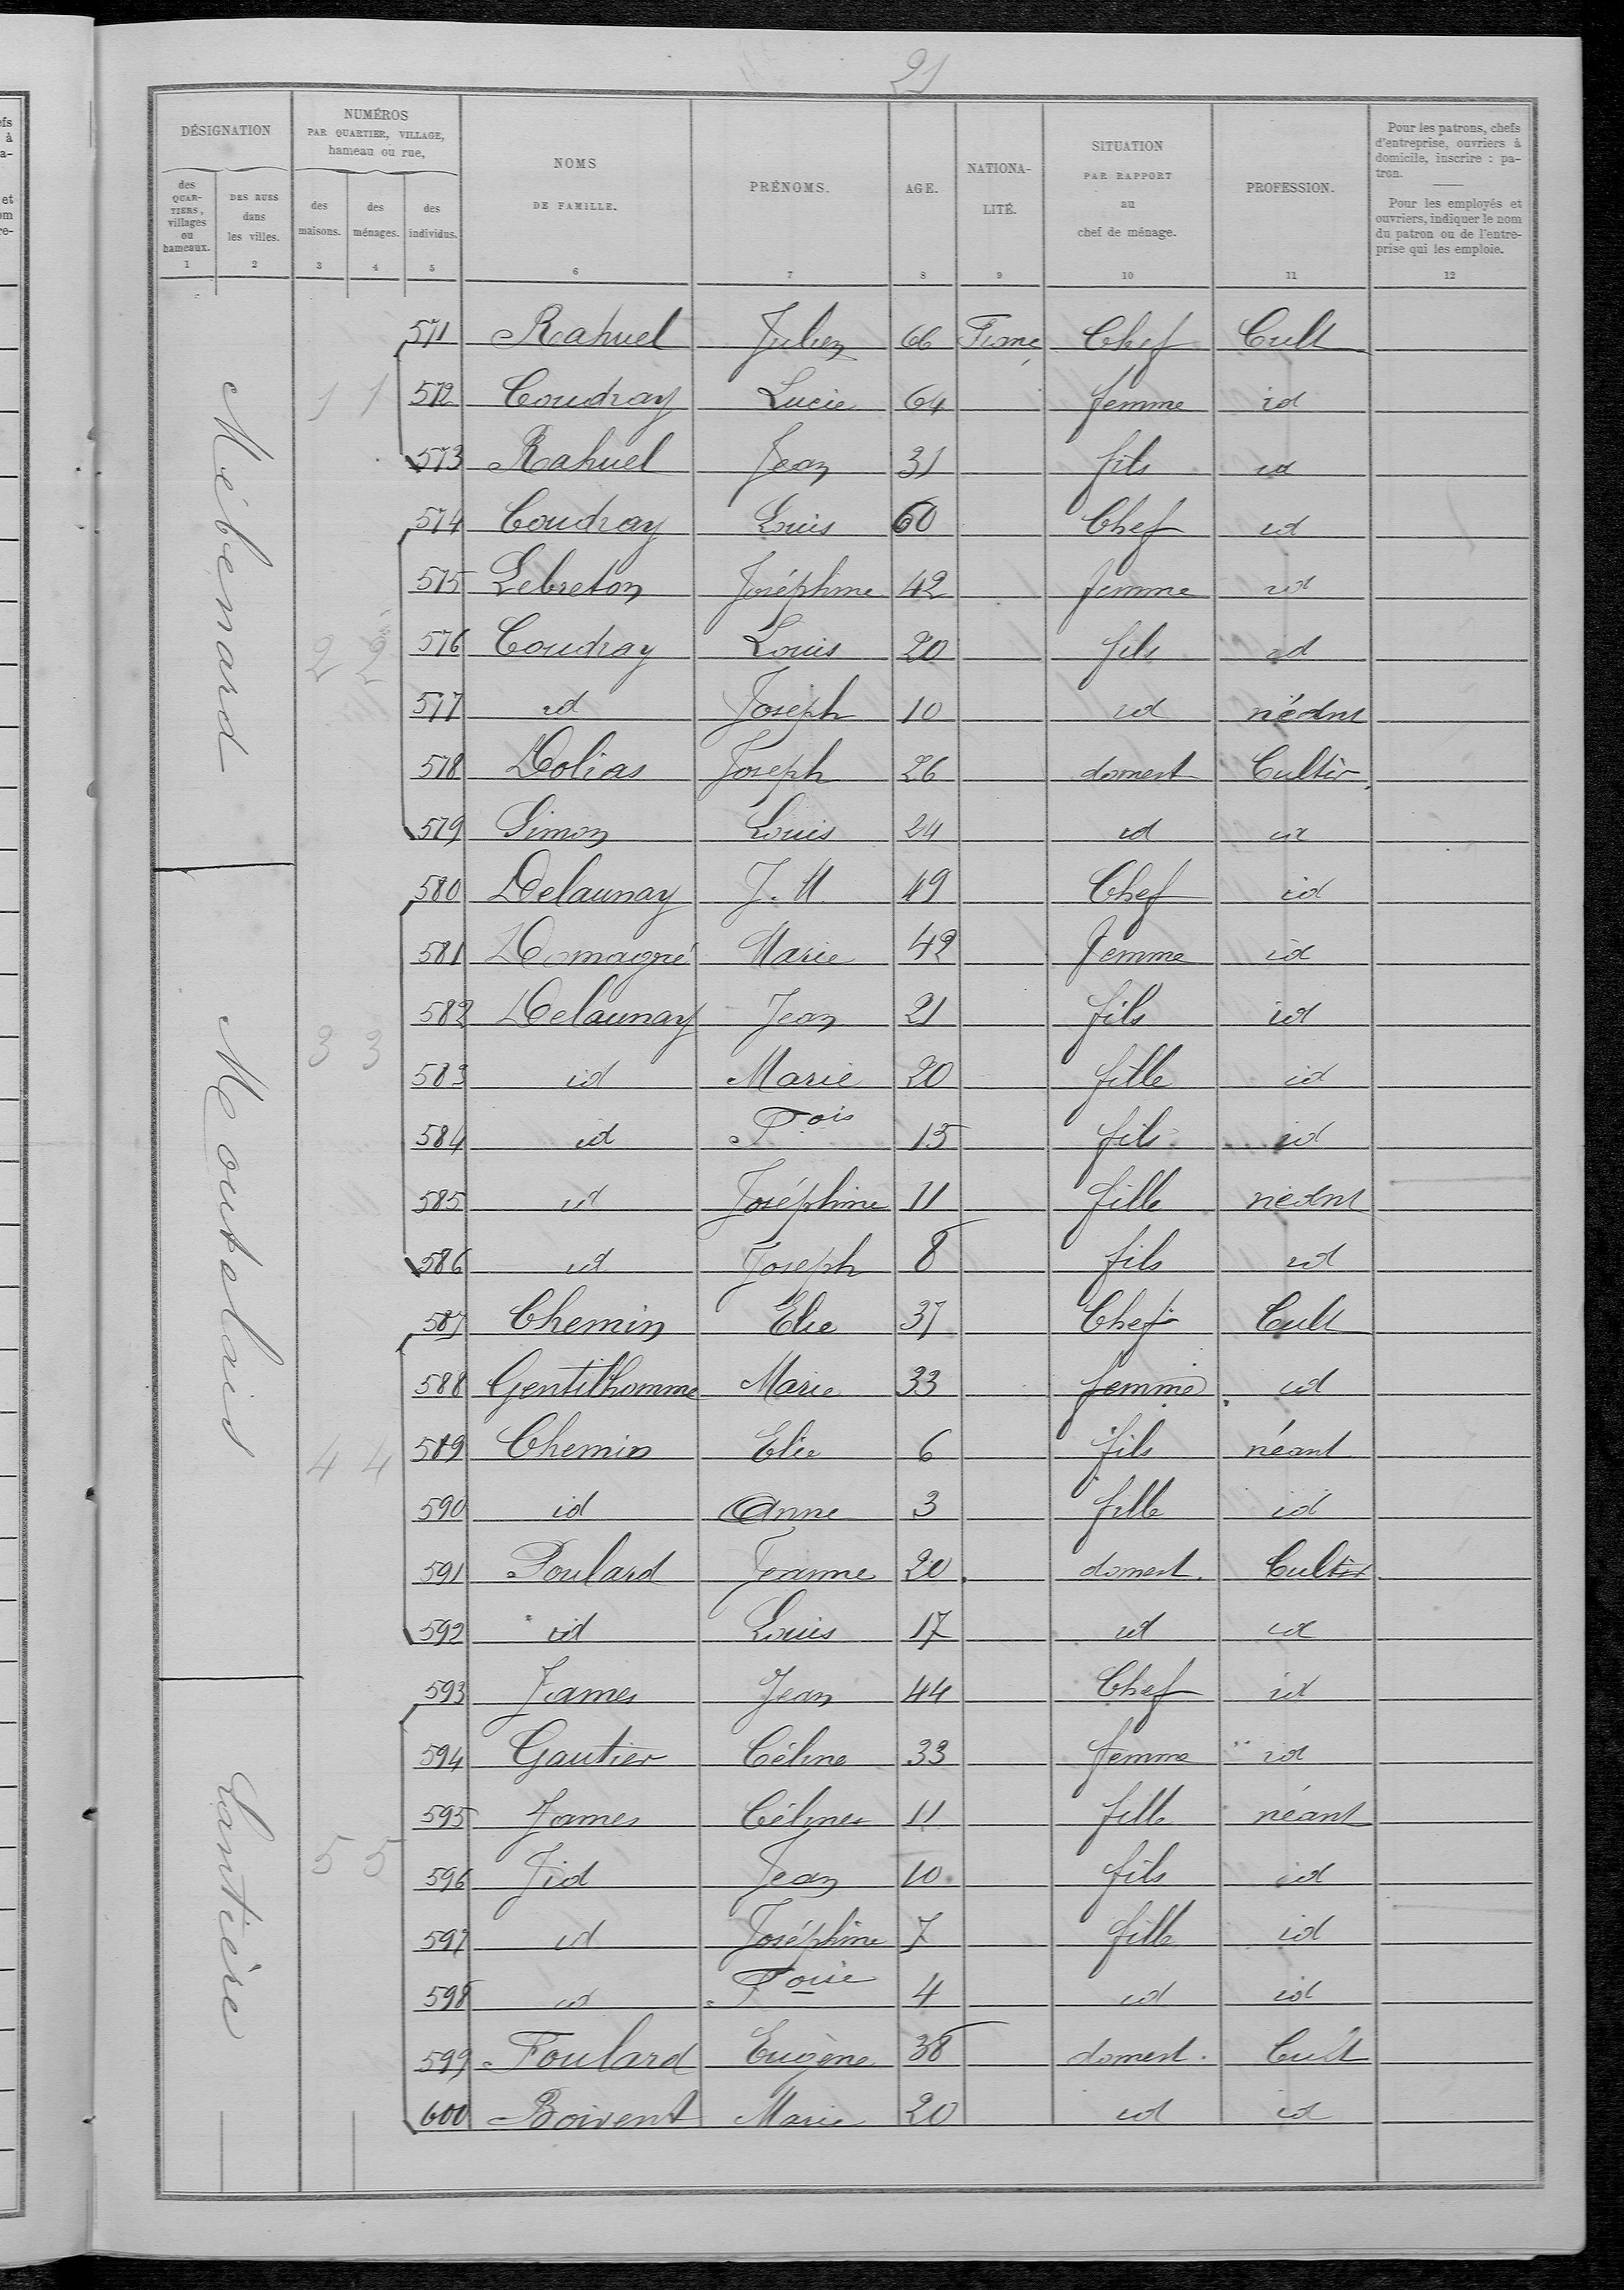 21
DÉSIGNATION
NUMÉROS
PAR QUARTIER, VILLAGE,
hameau ou rue,
NOMS
DE FAMILLE.
PRÉNOMS.
AGE.
NATIONA-
LITÉ.
SITUATION
PAR RAPPORT
au
chef de ménage.
PROFESSION.
Pour les patrons, chefs
d'entreprise, ouvriers à
domicile, inscrire : pa-
tron.
Pour les employés et
ouvriers, indiquer le nom
du patron ou de l'entre-
prise qui les emploie.
des
QUAR-
TIERS,
villages
ou
hameaux.
DES RUES
dans
les villes.
des
maisons.
des
ménages.
des
individus.
1 2 3 4 5 6 7 8 9 10 11 12
Mébenard
571 Rahuel Julien 66 Franç Chef Cult
1 1 572 Coudray Lucie 64 femme id
573 Rahuel Jean 31 fils id
574 Coudray Louis 60 Chef id
575 Lebreton Joséphine 42 femme id
2 2 576 Coudray Louis 20 fils id
577 id Joseph 10 id néant
578 Dolias Joseph 26 domest Cultiv.
579 Simon Louis 24 id id
Montalais
580 Delaunay J. M. 49 Chef id
581 Domagné Marie 42 femme id
582 Delaunay Jean 21 fils id
3 3 583 id Marie 20 fille id
584 id Fois 15 fils id
585 id Joséphine 11 fille néant
586 id Joseph 8 fils id
587 Chemin Elie 37 Chef Cult
588 Gentilhomme Marie 33 femme id
4 4 589 Chemin Elie 6 fils néant
590 id Anne 3 fille id
591 Poulard Jeanne 20 domest. Cultiv
592 id Louis 17 id id
Lantière
593 James Jean 44 Chef id
594 Gautier Céline 33 femme id
595 James Céline 11 fille néant
5 5 596 id Jean 10 fils id
597 id Joséphine 7 fille id
598 id Foise 4 id id
599 Foulard Eugène 38 domest. Cult
600 Boivent Marie 20 id id